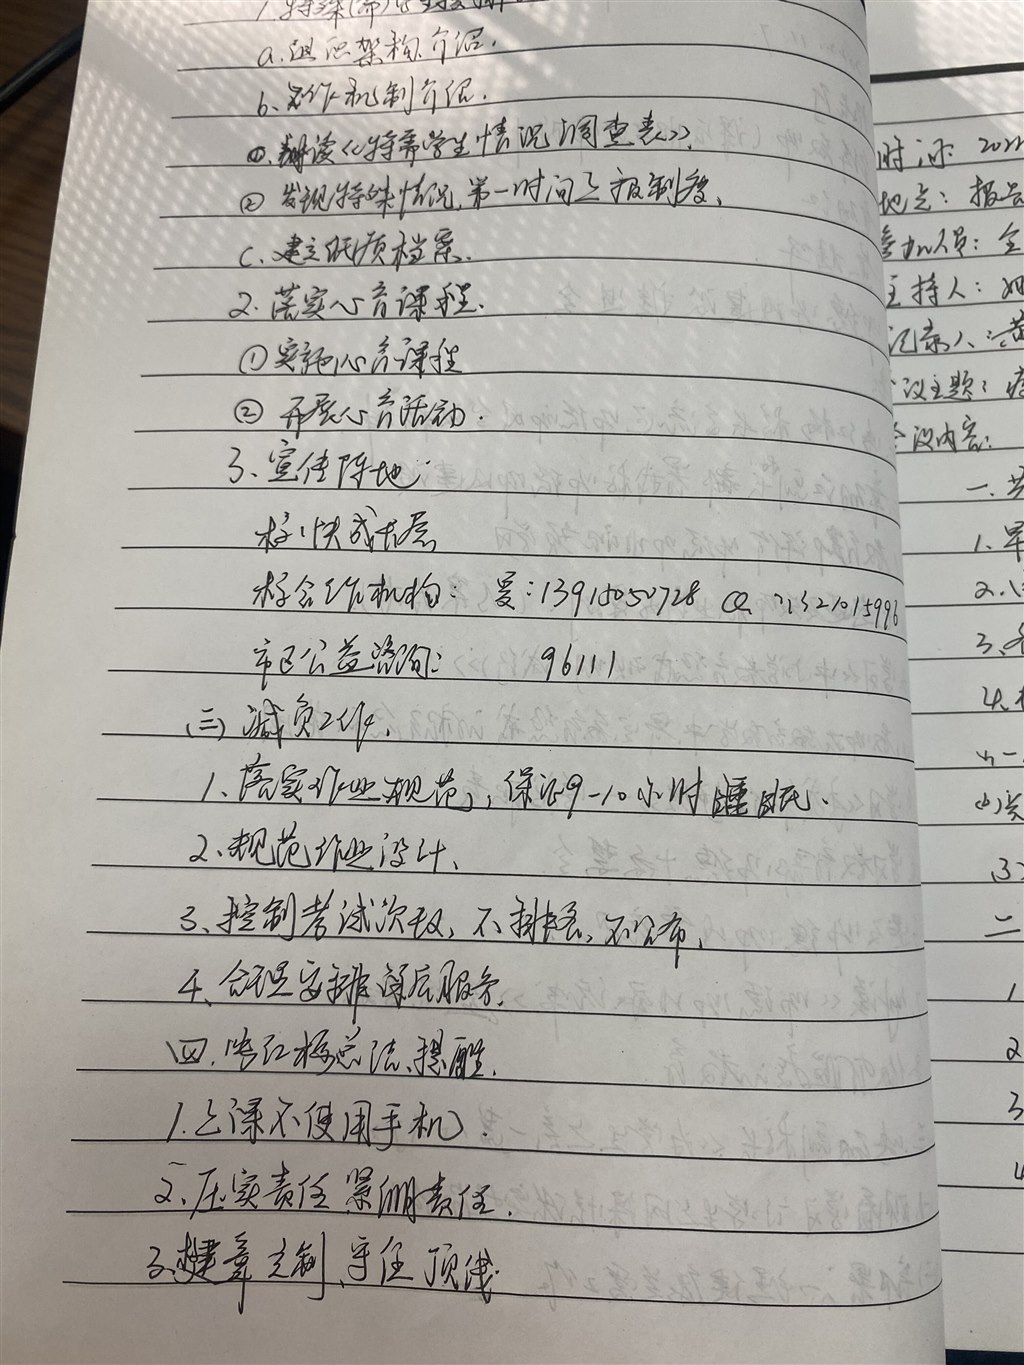 a.组织架构介绍.
b.工作机制介绍.
①.翻读《特需学生情况调查表》.
②发现特殊情况,第一时间上报制度.
c.建立纸质档案.
2.落实心育课程.
①实施心育课程
②开展心育活动.
3、宣传阵地:
校:快成长屋
校合作机构: 夏:13915050728
市区公益咨询: 96111
(三)减负工作.
1、落实作业规范,保证9-10小时睡眠.
2、规范作业设计、
3、控制考试次数,不排名,不公布,
4、合理安排课后服务.
四.张红校总结、提醒.
1.上课不使用手机.
2.压实责任 紧绷责任.
3.建章立制,守住顶线.
时间:2022
地点:报告
参加人员:全
主持人:
记录人:黄
会议主题:
会议内容:
一.
1.
2.
3、
4.
二
1
2
3
4